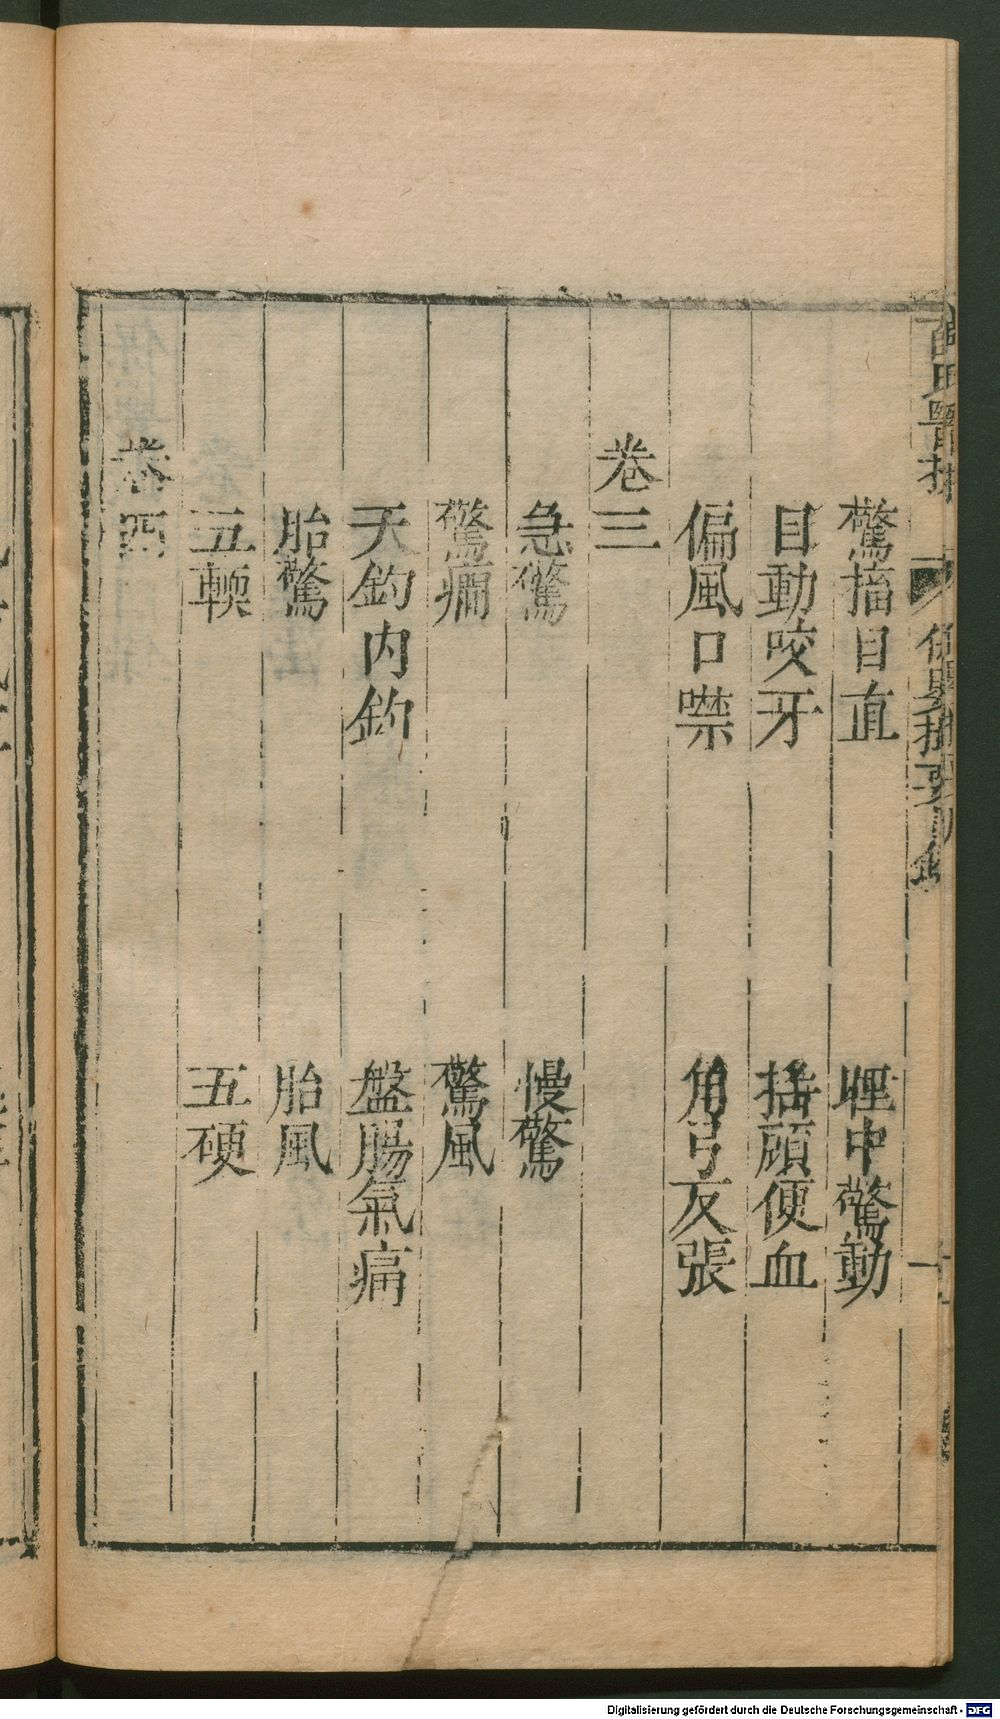 驚搐目直　睡中驚動
目動咬牙　搖頭便血
偏風口噤　角弓反張
卷三
急驚　慢驚
驚癇　驚風
天釣內釣　盤腸氣痛
胎驚　胎風
五軟　五硬
卷四
Digitalisierung gefördert durch die Deutsche Forschungsgemeinschaft - DFG